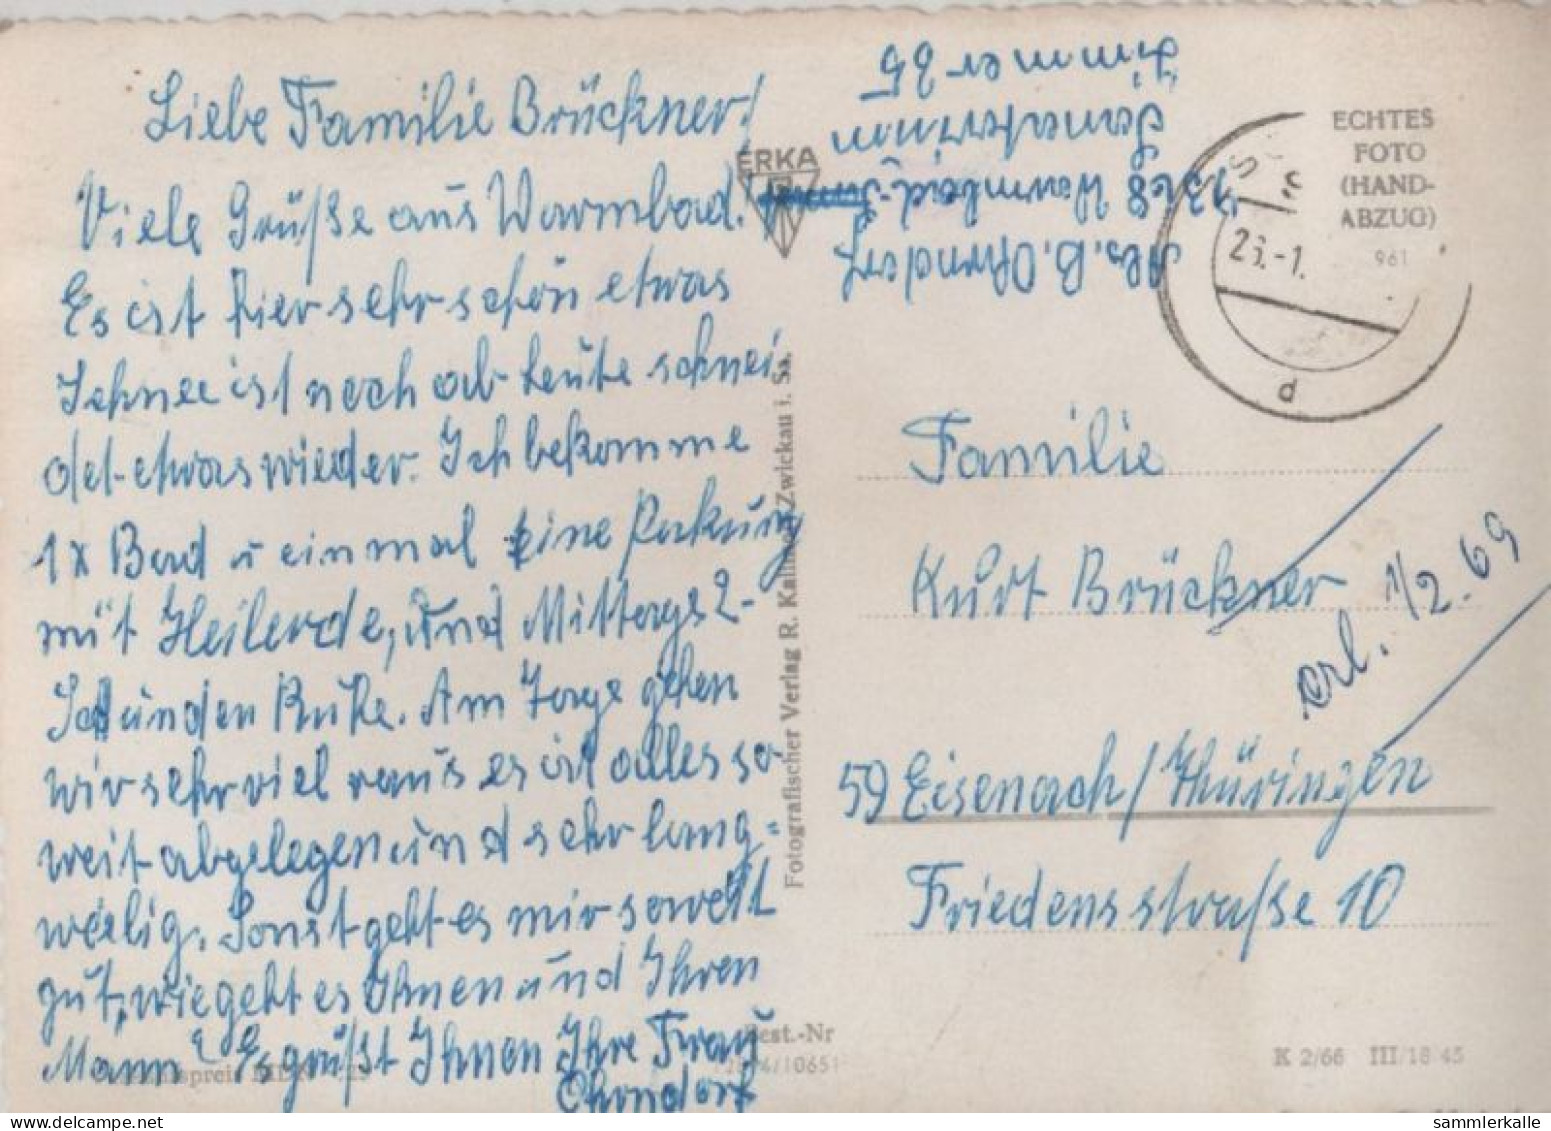 Liebe Familie Brückner!
Viele Grüße aus Warmbad.
Es ist hier sehr schön etwas
Schnee ist noch ob heute schnei-
det etwas wieder. Ich bekomme
1x Bad u einmal eine Packung
mit Heilerde, und Mittags 2-
Stunden Ruhe. Am Tage gehen
wir sehr viel raus es ist alles so
weit abgelegen und sehr lang=
weilig. Sonst geht es mir soweit
gut, wie geht es Ihnen und Ihren
Mann? Es grüßt Ihnen Ihre Frau
Ohrndorf
ERKA
Abs. B. Ohrndorf
Warmbad
Sanatorium
Zimmer 35
ECHTES
FOTO
(HAND-
ABZUG)
961
-1.
d
Fotografischer Verlag R. Zwickau i. Sa.
Familie
Kurt Brückner
erl. 1/2.69
59 Eisenach/Thüringen
Friedensstraße 10
Best.-Nr
/10651
K 2/66 III/18 45
www.delcampe.net
sammlerkalle